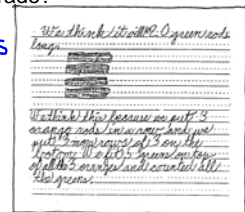 rado?
s
We think it will 20 green rods
long.
We think this because we put 3
orange rods in a row and we
put 3 more rows of 3 on the
bottom. We fit 5 green on top
of all the oranges and counted all
the greens.